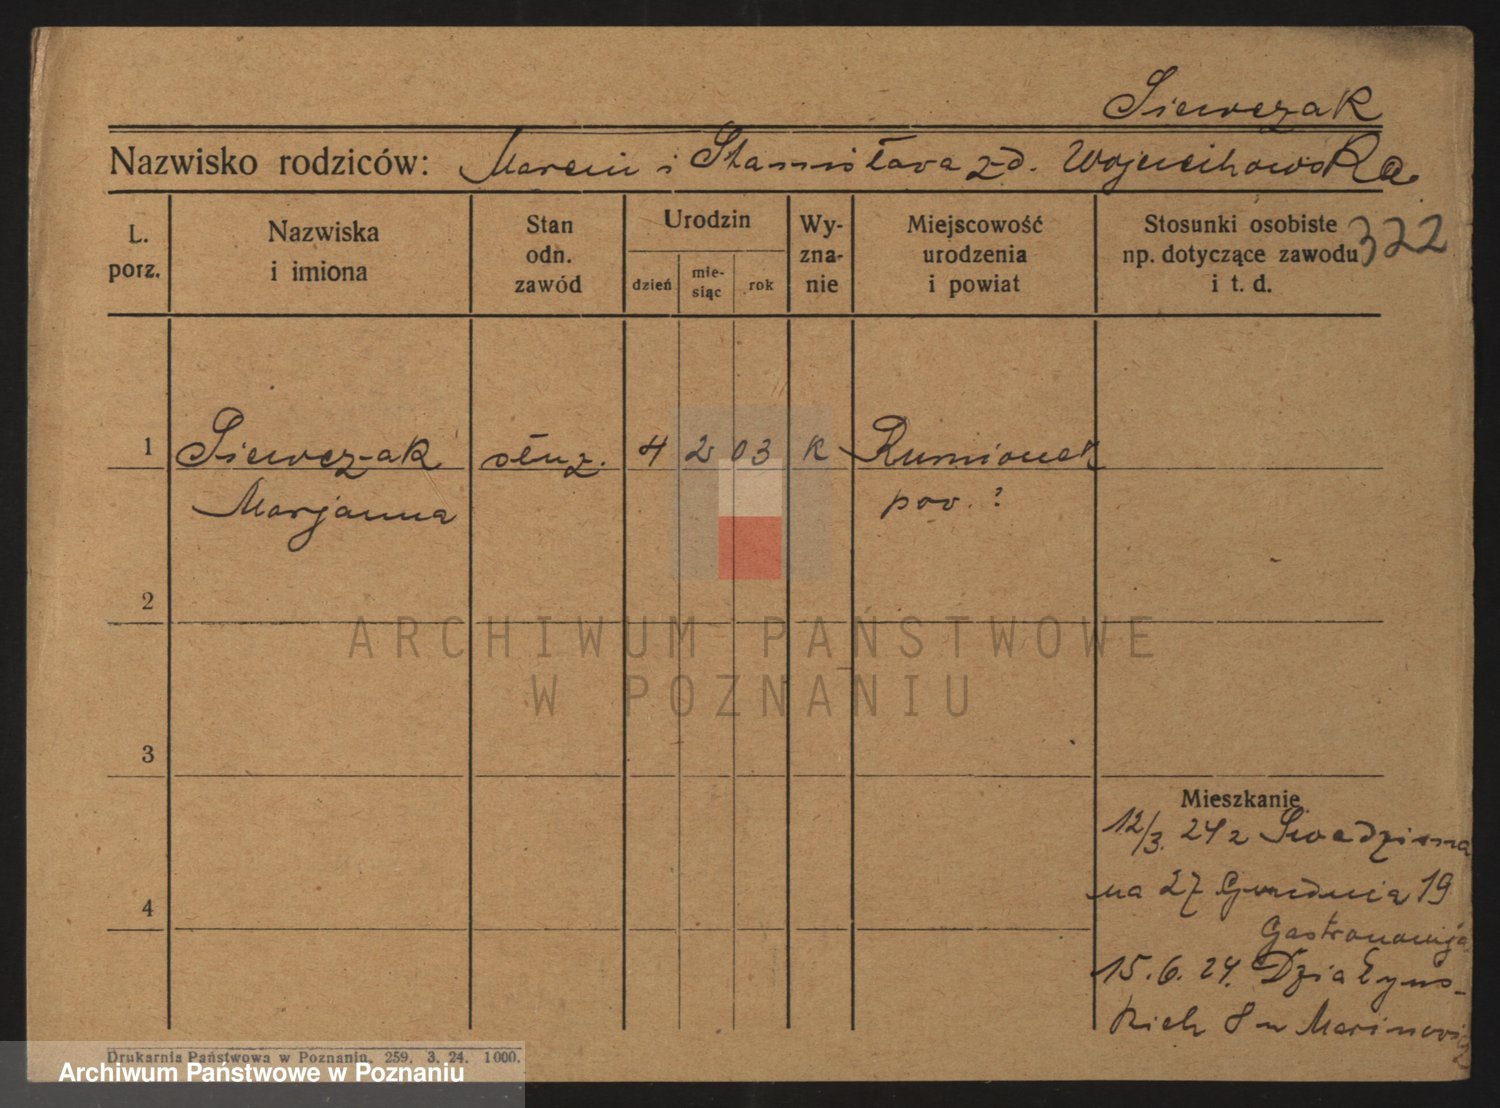 Siewczak
Nazwisko rodziców: Marcin i Stanisława zd. Wojciechowska
L. porz.
Nazwiska i imiona
Stan odn. zawód
Urodzin
dzień
mie- siąc
rok
Wy- zna- nie
Miejscowość urodzenia i powiat
Stosunki osobiste np. dotyczące zawodu i t. d.
322
1 Siewczak służ. 4 2 03 k
Marjanna pow. ?
2
ARCHIWUM PAŃSTWOWE
W POZNANIU
3
Mieszkanie
12/3. 24 z Swadzima
na 27 Grudnia 19
Gastronomja
4
15.6.24. Działyńs-
kich 8 u
Drukarnia Państwowa w Poznaniu, 259. 3. 24. 1000.
Archiwum Państwowe w Poznaniu